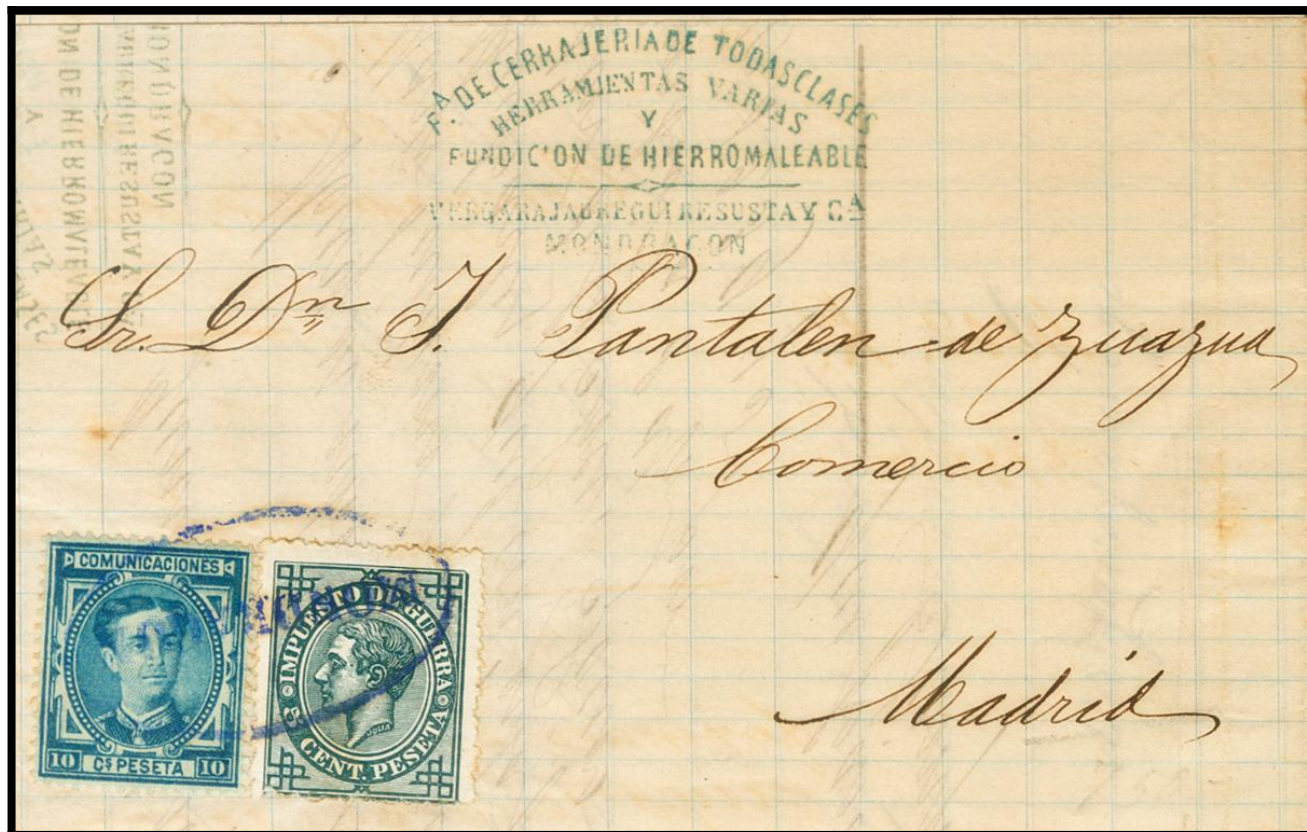 Fᴬ. DE CERRAJERIA DE TODAS CLASES
HERRAMIENTAS VARIAS
Y
FUNDICION DE HIERRO MALEABLE
VERGARAJAUREGUI RESUSTA Y Cᴬ
MONDRAGON
Sr. Dn J. Pantalen de Zuazua
Comercio
Madrid
COMUNICACIONES
10 Cs PESETA 10
IMPUESTO DE GUERRA
5 CENT. PESETA
JULIA